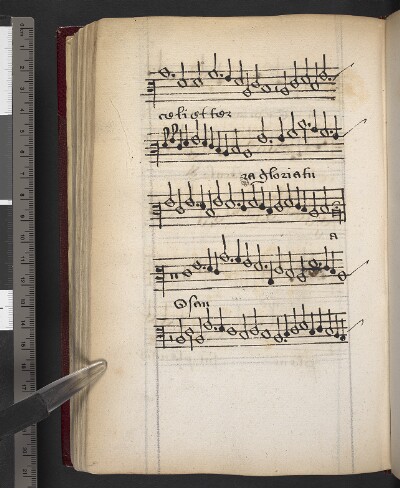 celi et ter
ra gloria tu
a
Osan